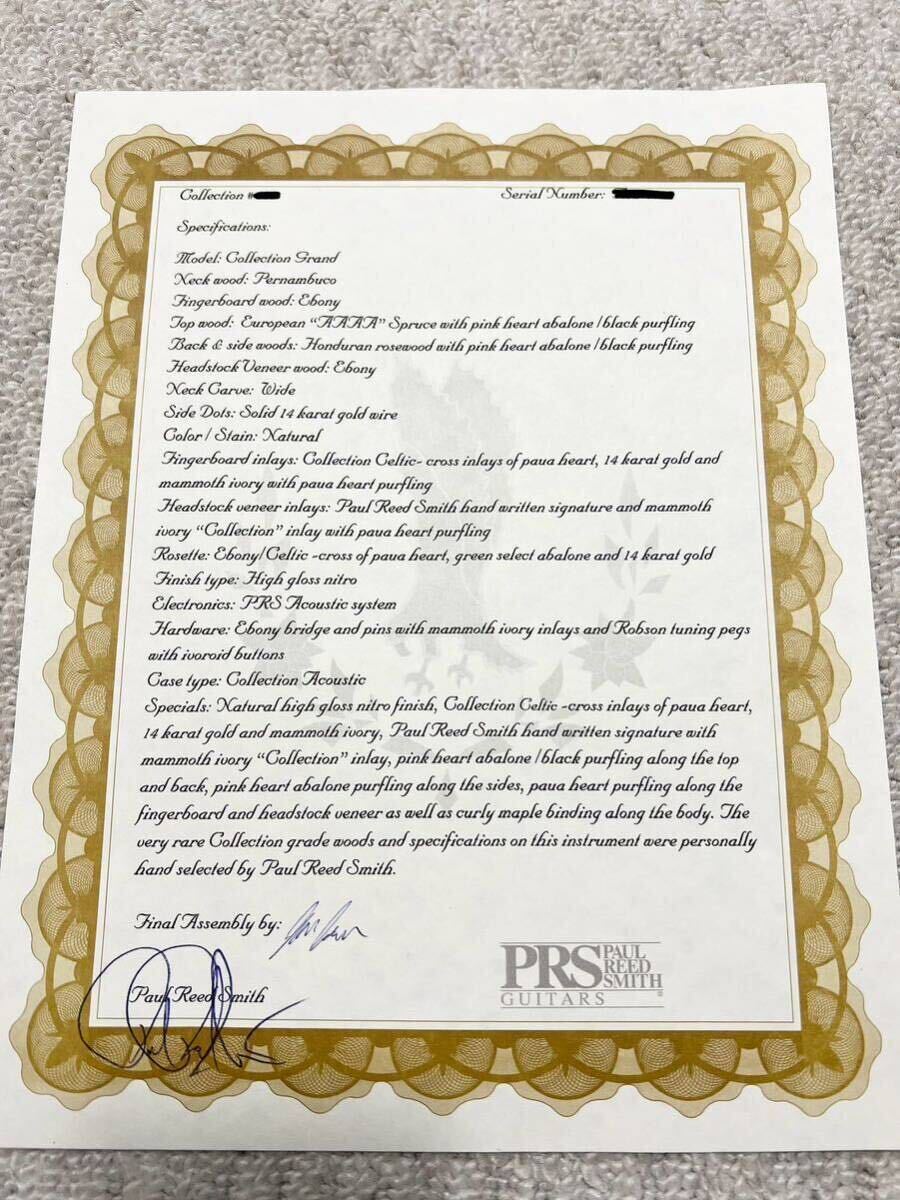 Collection #
Serial Number:
Specifications:
Model: Collection Grand
Neck wood: Pernambuco
Fingerboard wood: Ebony
Top wood: European “AAAA” Spruce with pink heart abalone /black purfling
Back & side woods: Honduran rosewood with pink heart abalone /black purfling
Headstock Veneer wood: Ebony
Neck Carve: Wide
Side Dots: Solid 14 karat gold wire
Color / Stain: Natural
Fingerboard inlays: Collection Celtic- cross inlays of paua heart, 14 karat gold and
mammoth ivory with paua heart purfling
Headstock veneer inlays: Paul Reed Smith hand written signature and mammoth
ivory “Collection” inlay with paua heart purfling
Rosette: Ebony/Celtic -cross of paua heart, green select abalone and 14 karat gold
Finish type: High gloss nitro
Electronics: PRS Acoustic system
Hardware: Ebony bridge and pins with mammoth ivory inlays and Robson tuning pegs
with ivoroid buttons
Case type: Collection Acoustic
Specials: Natural high gloss nitro finish, Collection Celtic -cross inlays of paua heart,
14 karat gold and mammoth ivory, Paul Reed Smith hand written signature with
mammoth ivory “Collection” inlay, pink heart abalone /black purfling along the top
and back, pink heart abalone purfling along the sides, paua heart purfling along the
fingerboard and headstock veneer as well as curly maple binding along the body. The
very rare Collection grade woods and specifications on this instrument were personally
hand selected by Paul Reed Smith.
Final Assembly by:
Paul Reed Smith
PRS PAUL REED SMITH
GUITARS